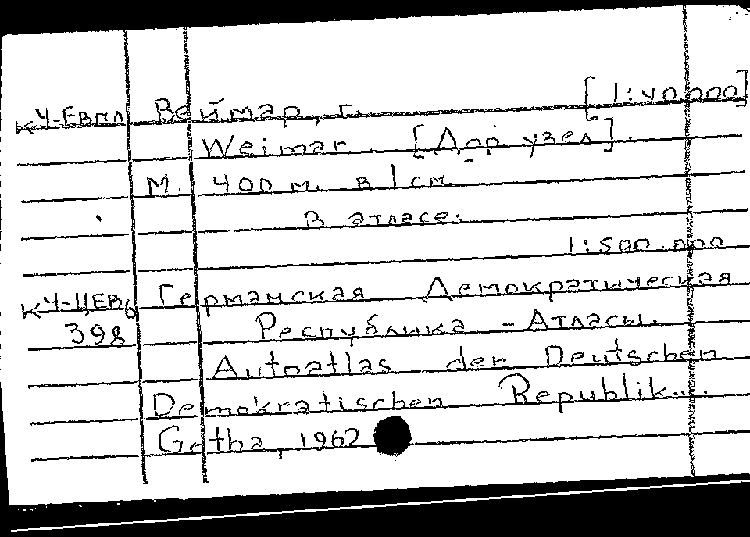 КЧ-ЕВПЛ Веймар, г. [1:40.000]
Weimar. [Дор. узел].
М. 400 м. в 1 см.
В атласе:
1:500.000
КЧ-ЦЕВ6 Германская Демократическая
398 Республика - Атласы.
Autoatlas der Deutschen
Demokratischen Republik....
Gotha, 1962